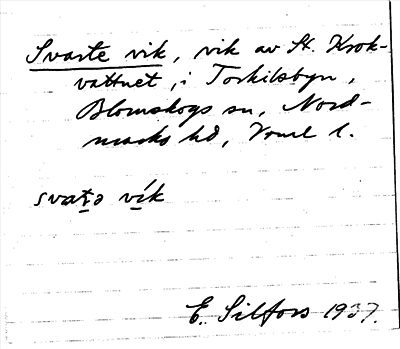 Svarte vik, vik av St. Krok-
vattnet, i Torkilsbyn,
Blomskogs sn, Nord-
marks hd, Vrml l.
svaʈə vík
E. Silfors 1937.